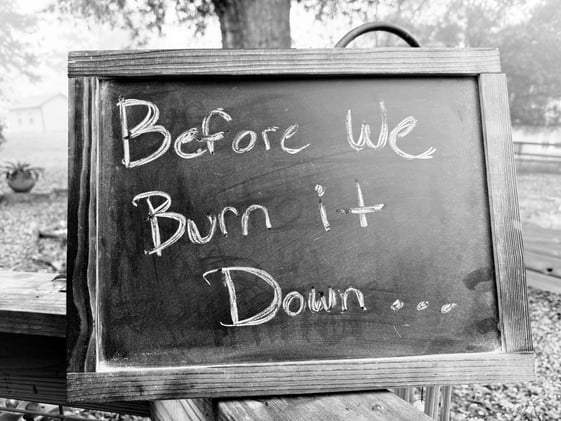 Before We
Burn it
Down....